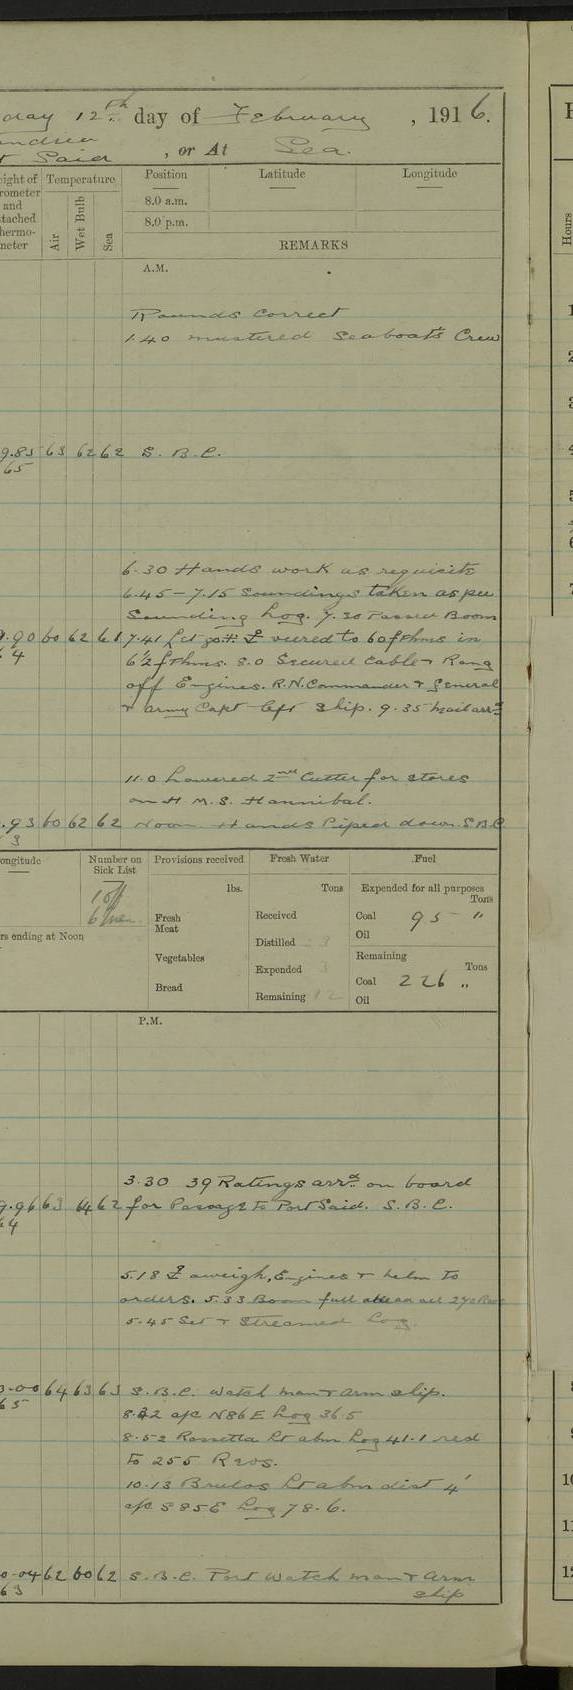 day 12th day of February, 1916.
t Said, or At Sea.
eight of
rometer
and
ttached
hermo-
meter
Temperature
Air
Wet Bulb
Sea
Position
Latitude
Longitude
8.0 a.m.
8.0 p.m.
REMARKS
A.M.
Rounds Correct
1.40 mustered Seaboats Crew
9.85 63 62 62 S. B. C.
65
6.30 Hands work as requisite
6.45 – 7.15 Soundings taken as per
Sounding Log. 7.30 Passed Boom
9.90 60 62 61 7.41 let go veered to 60 fthms in
4
6½ fthms. 8.0 Secured Cable & Rang
off Engines. R.N. Commander & General
& Army Capt left Ship. 9.35 Mail arrd
11.0 Lowered 2nd Cutter for stores
on H.M.S. Hannibal.
.93 60 62 62 Noon Hands Piped down S.B.C
3
ongitude
Number on
Sick List
1 off
6 men
rs ending at Noon
Provisions received
lbs.
Fresh
Meat
Vegetables
Bread
Fresh Water
Tons
Received
Distilled 3
Expended 3
Remaining 12
Fuel
Expended for all purposes
Tons
Coal 95 "
Oil
Remaining
Tons
Coal 226 "
Oil
P.M.
3.30 39 Ratings arrd on board
9.96 63 64 62 for Passage to Port Said. S. B. C.
64
5.18 aweigh, Engines & helm to
orders. 5.33 Boom full ahead all 270 Revs
5.45 Set & Streamed Log.
0.00 64 63 63 S. B. C. Watch man & arm ship.
65
8.32 a/c N86E Log 36.5
8.52 Rosetta Lt abm Log 41.1 red
to 255 Revs.
10.13 Brulos Lt abm dist 4'
a/c S85E Log 78.6.
0.04 62 60 62 S. B. C. Port Watch man & Arm
63
ship
Hours